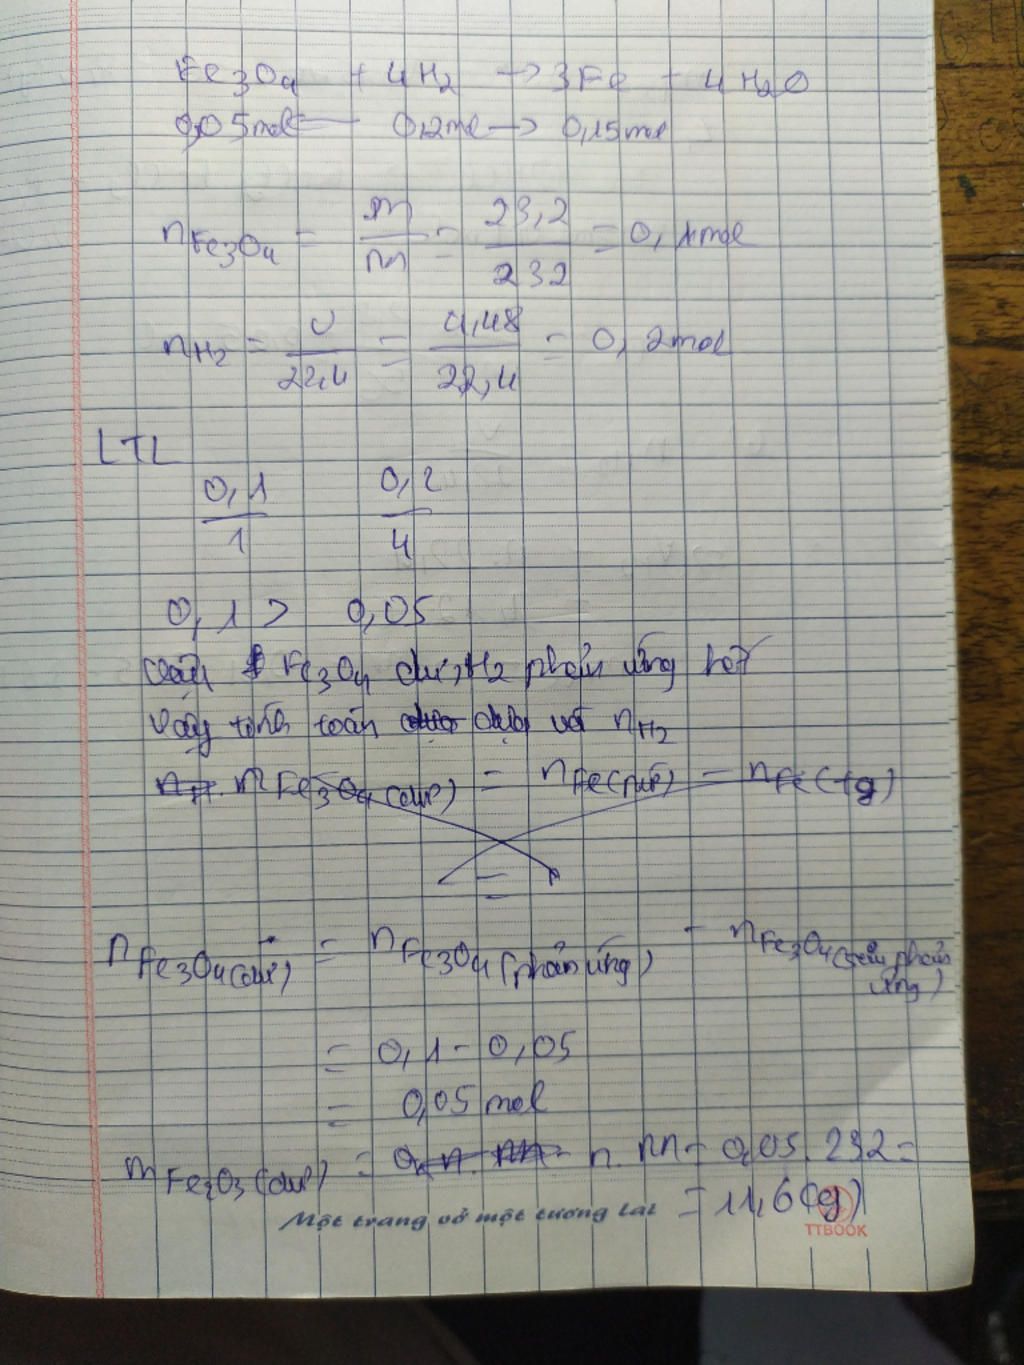 Fe3O4 + 4H2 → 3Fe + 4H2O
0,05mol ← 0,2mol → 0,15mol
nFe3O4 = m/M = 23,2/232 = 0,1mol
nH2 = V/22,4 = 4,48/22,4 = 0,2mol
LTL
0,1/1 0,2/4
0,1 > 0,05
Vậy Fe3O4 dư, H2 phản ứng hết
Vậy tính toán dựa với nH2
nFe3O4(dư) = nFe(pứ) = nFe(tg)
=
nFe3O4(dư) = nFe3O4(phản ứng) - nFe3O4(sau phản ứng)
= 0,1 - 0,05
= 0,05 mol
mFe2O3(dư) = n.M = 0,05.232 =
= 11,6(g)
Một trang vở một tương lai
TTBOOK